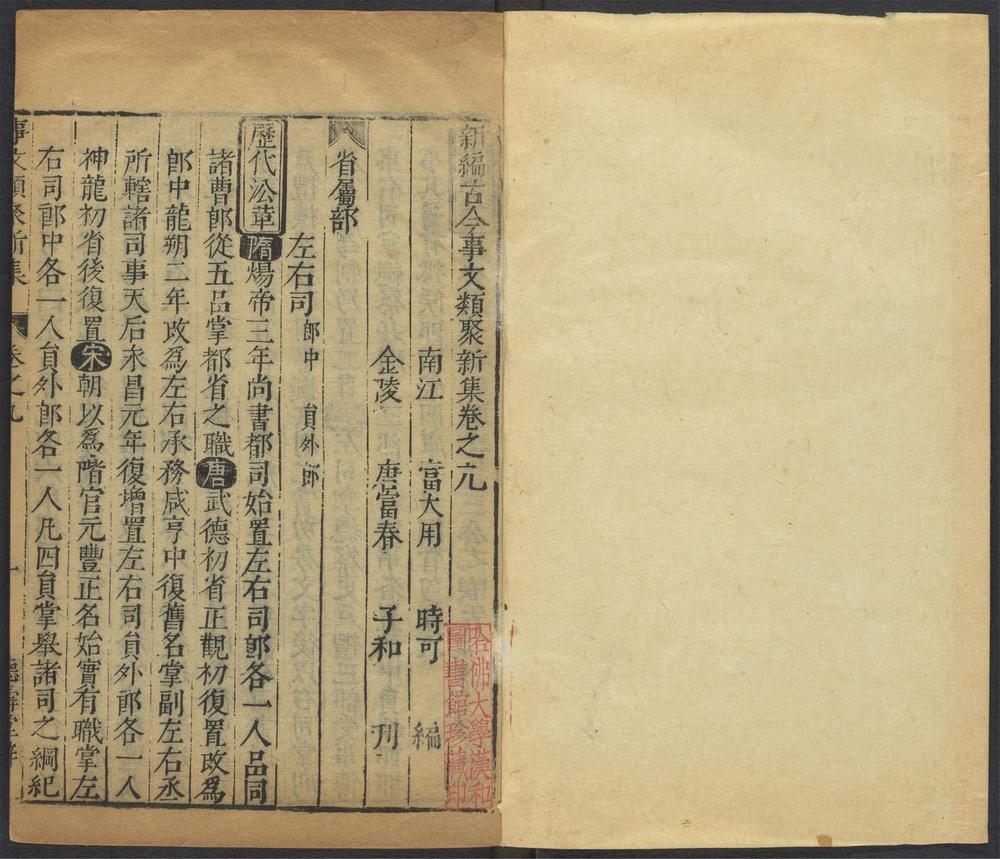 新編古今事文類聚新集卷之九
南江 富大用 時可 編
金陵 唐富春 子和 刊
省屬部
左右司 郎中 員外郎
歷代沿革 隋煬帝三年尚書都司始置左右司郎各一人品同
諸曹郎從五品掌都省之職唐武德初省正觀初復置改爲
郎中龍朔二年改爲左右承務咸亨中復舊名掌副左右丞
所轄諸司事天后永昌元年復增置左右司員外郎各一人
神龍初省後復置宋朝以爲階官元豐正名始實有職掌左
右司郎中各一人員外郎各一人凡四員掌舉諸司之綱紀
事文類聚新集 卷之九 一 德壽堂梓
哈佛大學漢和
圖書館珍藏印